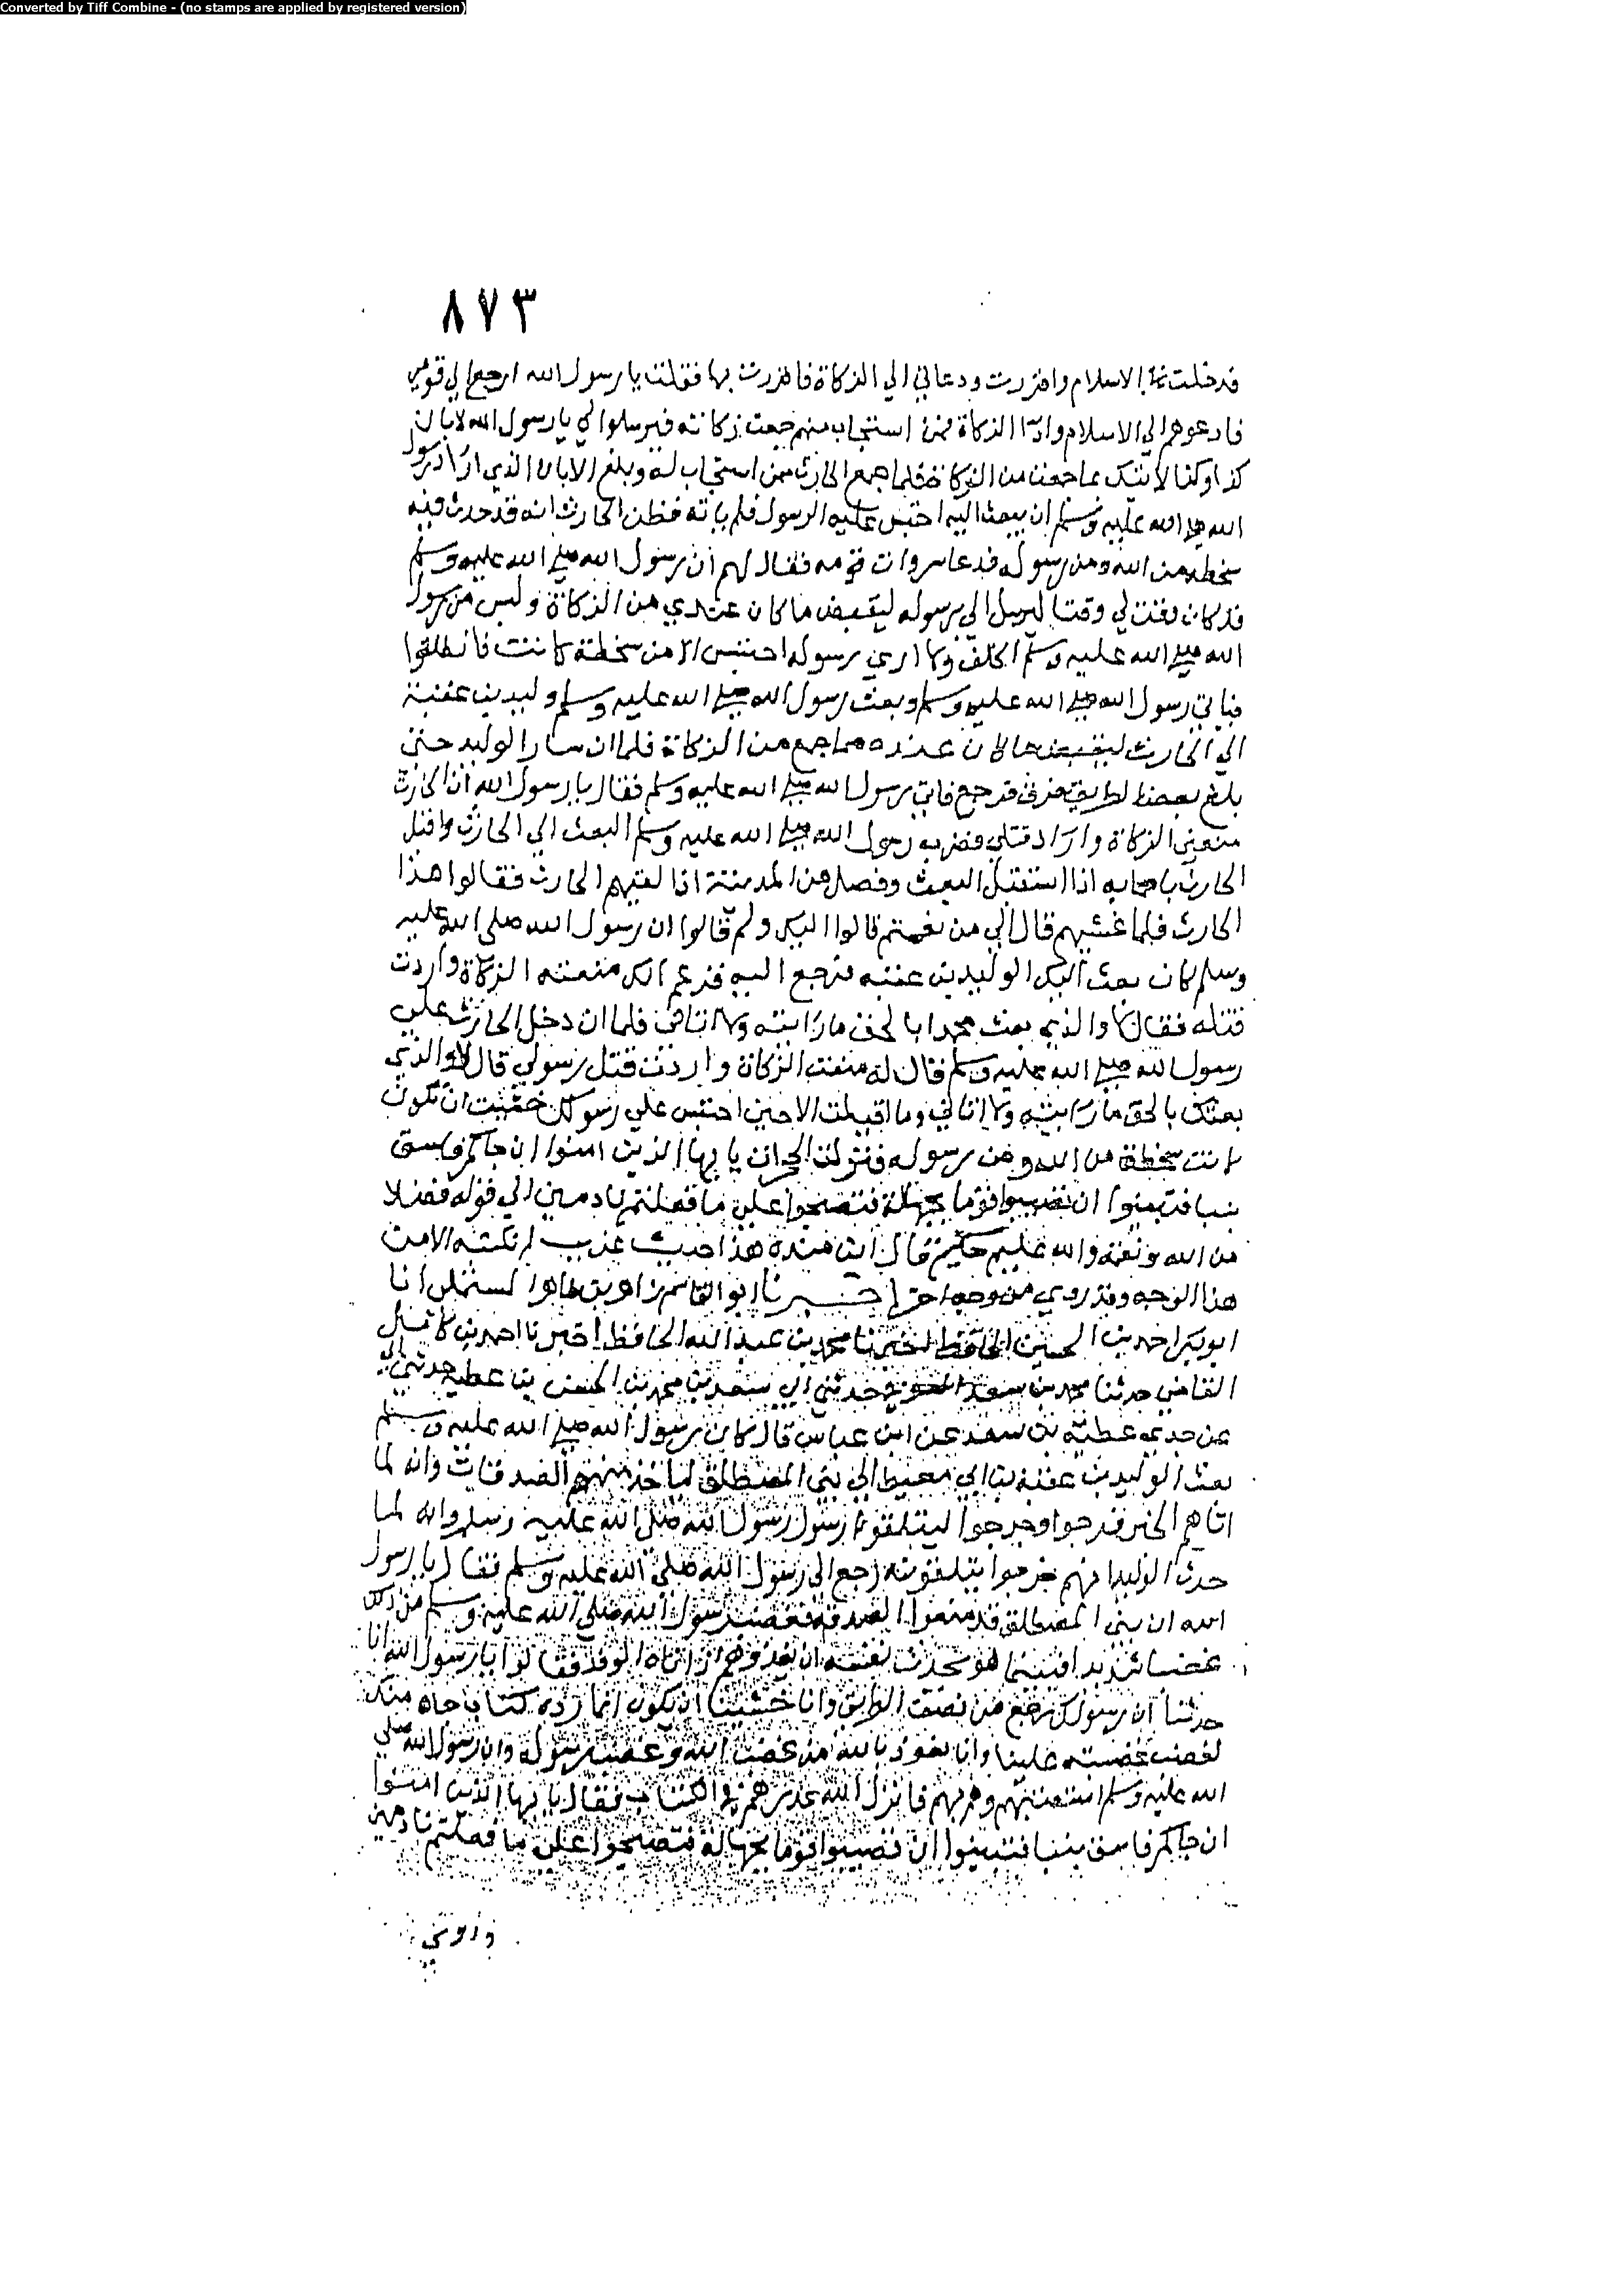 Converted by Tiff Combine - (no stamps are applied by registered version)
٨٧٣
فدخلت في الاسلام واقررت ودعاني الي الزكاة فاقررت بها فقلت يا رسول الله ارجع الي قومي
فادعوهم الي الاسلام وادا الزكاة فمن استجاب منهم جمعت زكاته فيرسلوا لي يا رسول الله لابان
كذا وكذا لاتتك بما جمعت من الزكاة فلما جمع الحارث ممن استجاب له وبلغ الابان الذي اراد رسول
الله صلي الله عليه وسلم ان يبعث اليه احتبس عليه الرسول فلم ياته فظن الحارث انه قد حدث فيه
سخطة من الله ومن رسوله فدعا سروات قومه فقال لهم ان رسول الله صلي الله عليه وسلم
قد كان وقت لي وقتا ليرسل الي برسوله ليقبض ما كان عندي من الزكاة وليس من رسول
الله صلي الله عليه وسلم الخلف ولا اري رسوله احتبس الا من سخطة كانت فانطلقوا
فياتي رسول الله صلي الله عليه وسلم وبعث رسول الله صلي الله عليه وسلم وليد بن عقبة
الي الحارث ليقبض ما كان عنده مما جمع من الزكاة فلما ان سار الوليد حتي
بلغ بعض الطريق فرق فرجع فاتي رسول الله صلي الله عليه وسلم فقال يا رسول الله ان الحارث
منعني الزكاة واراد قتلي فضرب رسول الله صلي الله عليه وسلم البعث الي الحارث واقبل
الحارث باصحابه اذا استقبل البعث وفصل من المدينة اذا لقيهم الحارث فقالوا هذا
الحارث فلما غشيهم قال الي من بعثتم قالوا اليك ولم قالوا ان رسول الله صلي الله عليه
وسلم كان بعث اليك الوليد بن عقبه فرجع اليه فزعم انك منعته الزكاة واردت
قتله فقال لا والذي بعث محمدا بالحق ما رايته ولا اتاني فلما ان دخل الحارث علي
رسول الله صلي الله عليه وسلم قال له منعت الزكاة واردت قتل رسولي قال لا والذي
بعثك بالحق ما رايته ولا اتاني وما اقبلت الا حين احتبس علي رسولك خشيت ان تكون
كانت سخطة من الله ومن رسوله فنزلت الحجرات يا يها الذين امنوا ان جاكم فاسق
بنبا فتبينوا ان تصيبوا قوما بجهالة فتصبحوا علي ما فعلتم نادمين الي قوله فضلا
من الله ونعمة والله عليم حكيم قال ابن مندة هذا حديث غريب لم نكتبه الا من
هذا الوجه وقد روي من وجه اخر اخبرنا ابو القاسم زاهر بن طاهر المستملي انا
ابو بكر احمد بن الحسين الحافظ اخبرنا محمد بن عبد الله الحافظ اخبرنا احمد بن كامل
القاضي حدثنا محمد بن سعد العوفي حدثني ابي سعد بن محمد بن الحسن بن عطية حدثني ابي
عن جدي عطية بن سعد عن ابن عباس قال كان رسول الله صلي الله عليه وسلم
بعث الوليد بن عقبة بن ابي معيط الي بني المصطلق لياخذ منهم الصدقات وانه لما
اتاهم الخبر فرحوا وخرجوا ليتلقوا رسول رسول الله صلي الله عليه وسلم وانه لما
حدث الوليد انهم خرجوا يتلقونه رجع الي رسول الله صلي الله عليه وسلم فقال يا رسول
الله ان بني المصطلق قد منعوا الصدقة فغضب رسول الله صلي الله عليه وسلم من ذلك
غضبا شديدا فبينما هو يحدث نفسه ان يغزوهم اذ اتاه الوفد فقالوا يا رسول الله انا
حدثنا ان رسولك رجع من نصف الطريق وانا خشينا ان يكون انما رده كتاب جاه منك
لغضب غضبته علينا وانا نعوذ بالله من غضب الله وغضب رسوله وان رسول الله صلي
الله عليه وسلم استعتبهم وهم بهم فانزل الله عذرهم في الكتاب فقال يا يها الذين امنوا
ان جاكم فاسق بنبا فتبينوا ان تصيبوا قوما بجهالة فتصبحوا علي ما فعلتم نادمين